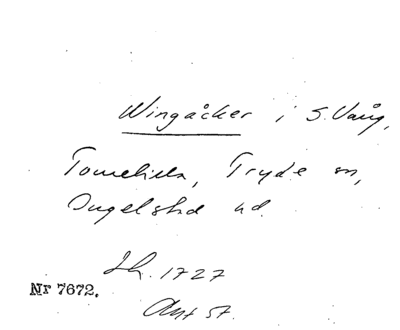 Wingåcker i S. Vång,
Tomelilla, Tryde sn,
Ingelstad hd.
Lh. 1727
Nr 7672.
Ant 57.